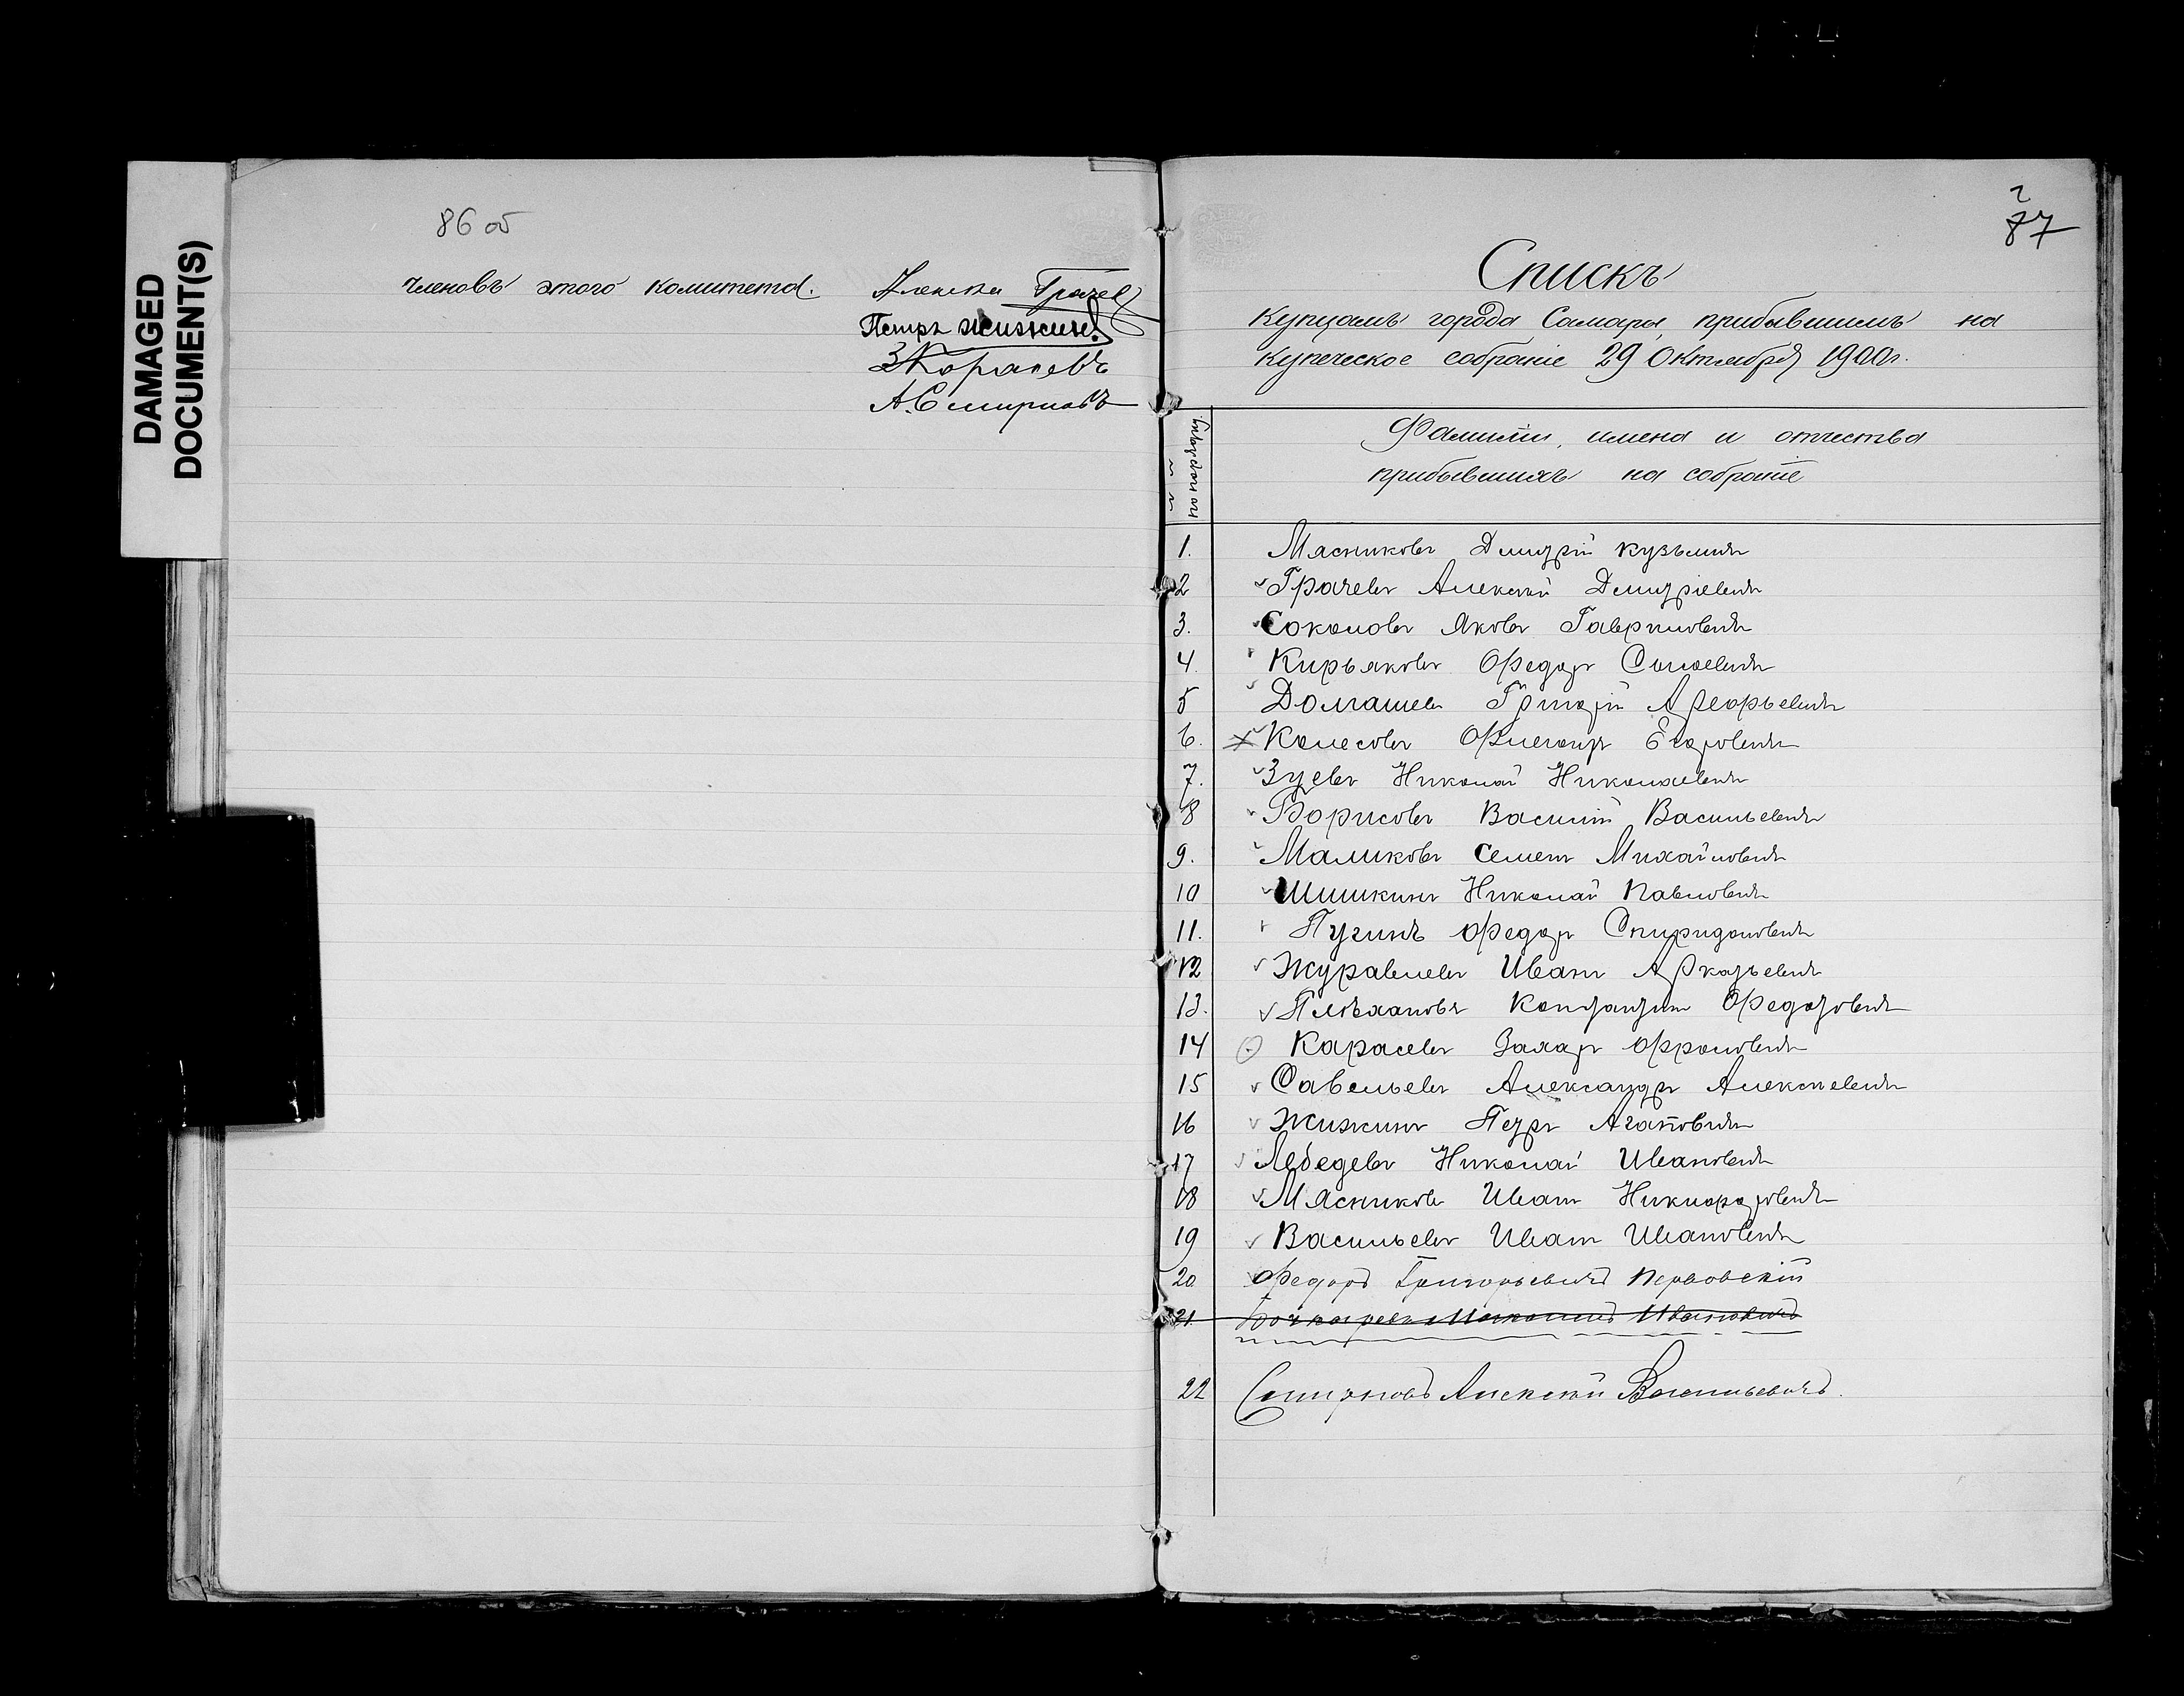 DAMAGED
DOCUMENT(S)
86 об
членовъ этого комитета.
Алексей Грачев
Петръ Жижинъ
З Карасевъ
А. Смирновъ
2
87
Списокъ
купцамъ города Самары, прибывшимъ на
купеческое собраніе 29 Октября 1900 г.
по порядку
Фамиліи, имена и отчества
прибывшихъ на собраніе
1. Мясниковъ Дмитрій Кузьмичъ
2 Грачевъ Алексѣй Дмитріевичъ
3. Соколовъ Яковъ Гавриловичъ
4. Кирьяковъ Федоръ Сысоевичъ
5 Долгашевъ Григорій Аѳеорьевичъ
6. Колесовъ Флегонтъ Егоровичъ
7. Зуевъ Николай Николаевичъ
8 Борисовъ Василій Васильевичъ
9. Маликовъ Семенъ Михайловичъ
10 Шишкинъ Николай Павловичъ
11. Пугинъ Федоръ Спиридоновичъ
12 Журавлевъ Иванъ Аркадьевичъ
13. Плѣхановъ Константинъ Федоровичъ
14 Карасевъ Захаръ Фроловичъ
15 Савельевъ Александръ Алексѣевичъ
16 Жижинъ Петръ Агаповичъ
17 Лебедевъ Николай Ивановичъ
18 Мясниковъ Иванъ Никифоровичъ
19 Васильевъ Иванъ Ивановичъ
20 Федоръ Григорьевичъ Перловскій
21. Ивановичъ
22 Смирновъ Алексѣй Васильевичъ.